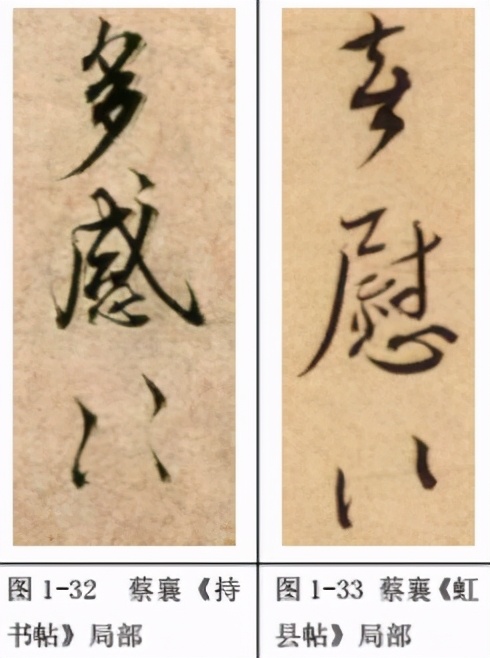 多感々々
图 1-32 蔡襄《持
书帖》局部
喜慰々々
图 1-33 蔡襄《虹
县帖》局部